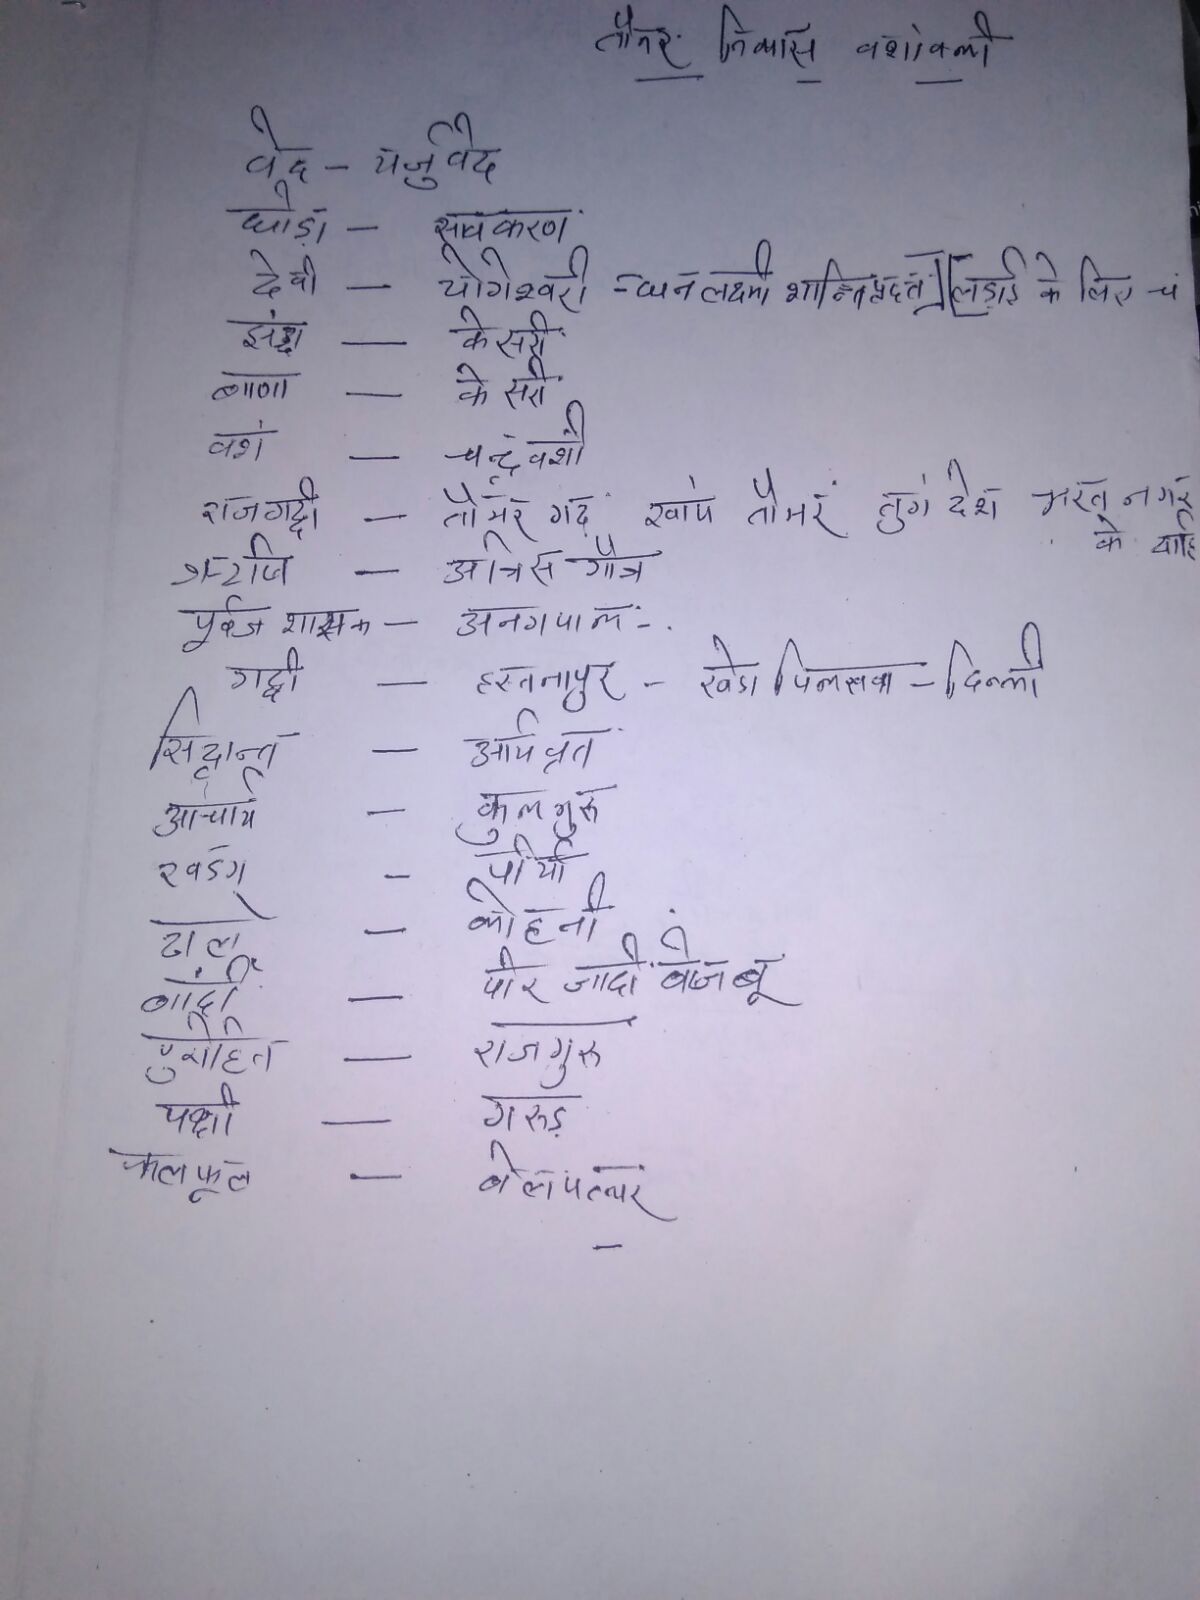 तौमर निकास वशांवली
वेद - यर्जुवेद
घोड़ा - सावकरण
देवी - योगेश्वरी - धनलक्ष्मी शान्तिप्रदत लड़ाई के लिए
झंडा - केसरी
बाणा - केसरी
वशं - चन्द्रंवशी
राजगद्दी - तौमर गढ़ खांप तौमर तुगं देश नगर
के
ऋषि - अत्रिस गौत्र
पूर्वज शासक - अनगपाल -
गद्दी - हस्तनापुर - खेडा पिलखवा - दिल्ली
सिद्धान्त - आर्यव्रत
आचार्य - कुलगुरू
खडग -
ढाल - मोहनी
बांदी - पीर जादी
पुरोहित - राजगुरू
पक्षी - गरूड़
फलफूल - बेलपत्थर